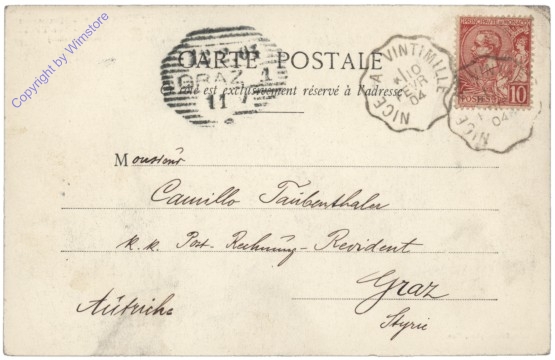 Copyright by Wimstore
CARTE POSTALE
Côté est exclusivement réservé à l'adresse
GRAZ 1
11
NICE A VINTIMILLE
10
FEVR
04
PRINCIPAUTE DE MONACO
10
NICE
04
Monsieur
Camillo Taubenthaler
k. k. Post-Rechnungs-Revident
Graz
Styrie
Autriche